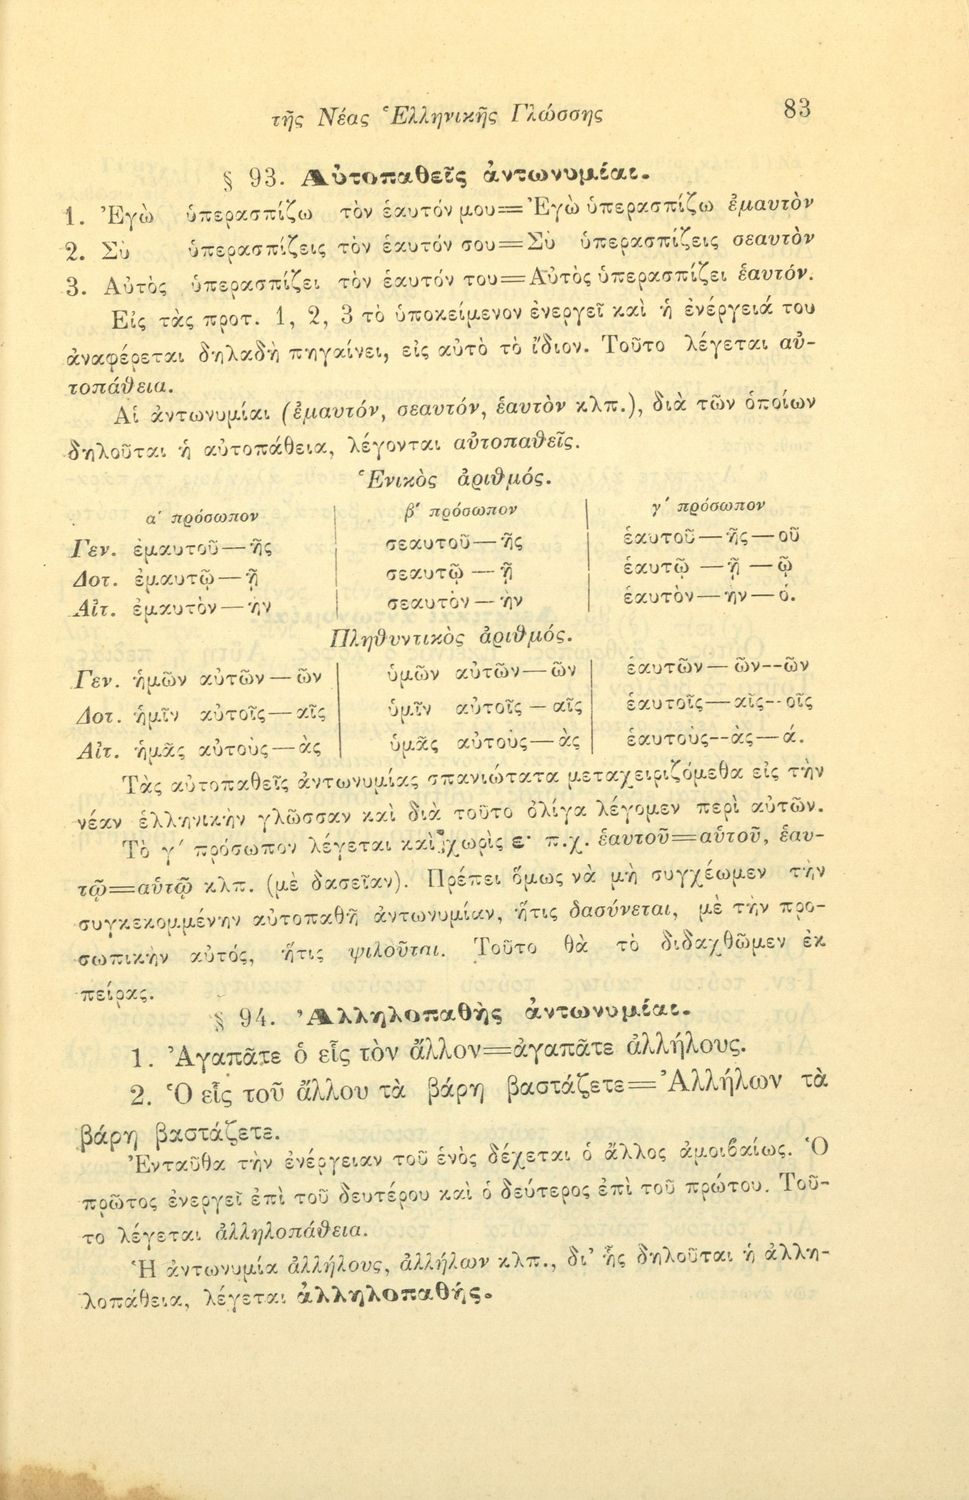 τῆς Νέας Ἑλληνικῆς Γλώσσης 83
§ 93. Αὐτοπαθεῖς ἀντωνυμίαι.
1. Ἐγὼ ὑπερασπίζω τὸν ἑαυτόν μου=Ἐγὼ ὑπερασπίζω ἐμαυτὸν
2. Σὺ ὑπερασπίζεις τὸν ἑαυτόν σου=Σὺ ὑπερασπίζεις σεαυτὸν
3. Αὐτὸς ὑπερασπίζει τὸν ἑαυτόν του=Αὐτὸς ὑπερασπίζει ἑαυτόν.
Εἰς τὰς προτ. 1, 2, 3 τὸ ὑποκείμενον ἐνεργεῖ καὶ ἡ ἐνέργειά του
ἀναφέρεται δηλαδὴ πηγαίνει, εἰς αὐτὸ τὸ ἴδιον. Τοῦτο λέγεται αὐ-
τοπάθεια.
Αἱ ἀντωνυμίαι (ἐμαυτόν, σεαυτόν, ἑαυτὸν κλπ.), διὰ τῶν ὁποίων
δηλοῦται ἡ αὐτοπάθεια, λέγονται αὐτοπαθεῖς.
Ἑνικὸς ἀριθμός.
α' πρόσωπον β' πρόσωπον γ' πρόσωπον
Γεν. ἐμαυτοῦ—ῆς σεαυτοῦ—ῆς ἑαυτοῦ—ῆς—οῦ
Δοτ. ἐμαυτῷ—ῇ σεαυτῷ—ῇ ἑαυτῷ—ῇ—ῷ
Αἰτ. ἐμαυτὸν—ήν σεαυτὸν—ήν ἑαυτὸν—ήν—ό.
Πληθυντικὸς ἀριθμός.
Γεν. ἡμῶν αὐτῶν—ῶν ὑμῶν αὐτῶν—ῶν ἑαυτῶν—ῶν--ῶν
Δοτ. ἡμῖν αὐτοῖς—αῖς ὑμῖν αὐτοῖς—αῖς ἑαυτοῖς—αῖς--οῖς
Αἰτ. ἡμᾶς αὐτοὺς—ὰς ὑμᾶς αὐτοὺς—ὰς ἑαυτοὺς--ὰς—ά.
Τὰς αὐτοπαθεῖς ἀντωνυμίας σπανιώτατα μεταχειριζόμεθα εἰς τὴν
νέαν ἑλληνικὴν γλῶσσαν καὶ διὰ τοῦτο ὀλίγα λέγομεν περὶ αὐτῶν.
Τὸ γ' πρόσωπον λέγεται καὶ χωρὶς ε· π.χ. ἑαυτοῦ=αὑτοῦ, ἑαυ-
τῷ=αὑτῷ κλπ. (μὲ δασεῖαν). Πρέπει ὅμως νὰ μὴ συγχέωμεν τὴν
συγκεκομμένην αὐτοπαθῆ ἀντωνυμίαν, ἥτις δασύνεται, μὲ τὴν προ-
σωπικὴν αὐτός, ἥτις ψιλοῦται. Τοῦτο θὰ τὸ διδαχθῶμεν ἐκ
πείρας.
§ 94. Ἀλληλοπαθὴς ἀντωνυμίαι.
1. Ἀγαπᾶτε ὁ εἷς τὸν ἄλλον=ἀγαπᾶτε ἀλλήλους.
2. Ὁ εἷς τοῦ ἄλλου τὰ βάρη βαστάζετε=Ἀλλήλων τὰ
βάρη βαστάζετε.
Ἐνταῦθα τὴν ἐνέργειαν τοῦ ἑνὸς δέχεται ὁ ἄλλος ἀμοιβαίως. Ὁ
πρῶτος ἐνεργεῖ ἐπὶ τοῦ δευτέρου καὶ ὁ δεύτερος ἐπὶ τοῦ πρώτου. Τοῦ-
το λέγεται ἀλληλοπάθεια.
Ἡ ἀντωνυμία ἀλλήλους, ἀλλήλων κλπ., δι' ἧς δηλοῦται ἡ ἀλλη-
λοπάθεια, λέγεται ἀλληλοπαθής.